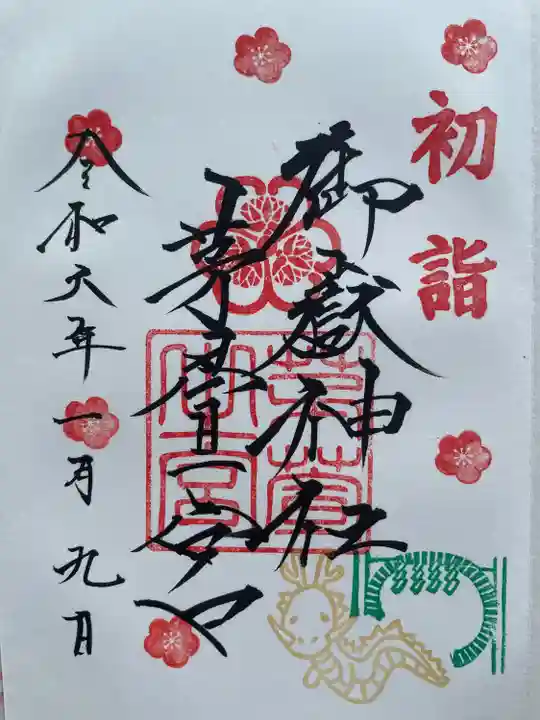 初詣
御嶽神社
茅萱宮
令和六年一月九日